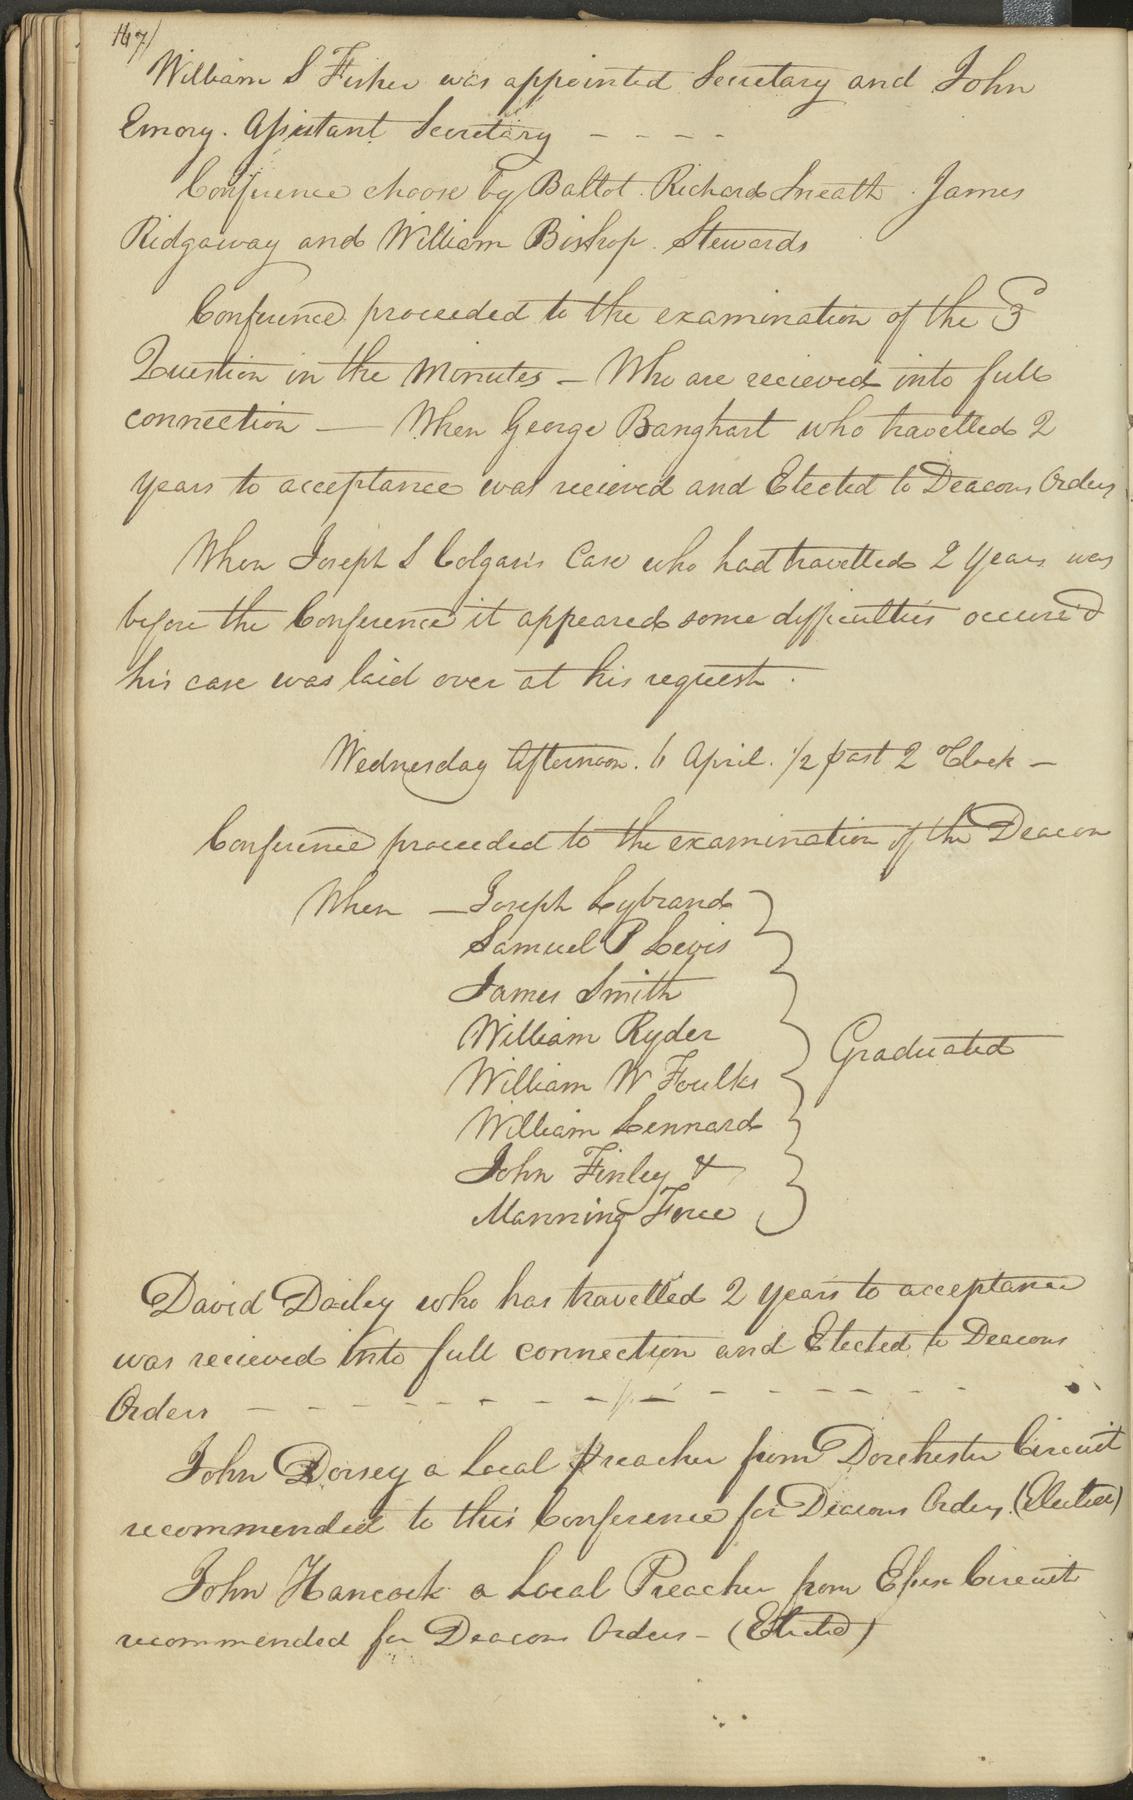 147/
William S Fisher was appointed Secretary and John
Emory. Assistant Secretary - - - -
Conference choose by Ballot. Richard Sneath. James
Ridgaway and William Bishop. Stewards
Conference proceeded to the examination of the 3
Question in the Minutes - Who are recieved into full
connection — When George Banghart who travelled 2
years to acceptance was recieved and Elected to Deacons Orders
When Joseph S Colgan's Case who had travelled 2 Years was
before the Conference it appeared some difficulties occure'd
his case was laid over at his request.
Wednesday Afternoon. 6 April. 1/2 past 2 O'Clock -
Conference proceeded to the examination of the Deacon
When — Joseph Lybrand
Samuel P Levis
James Smith
William Ryder
Graduated
William W Foulks
William Lennard
John Finley &
Manning Force
David Dailey who has travelled 2 years to acceptance
was recieved into full connection and Elected to Deacons
Orders - - - - - - - - - - - - - -
John Dorsey a Local Preacher from Dorchester Circuit
recommended to this Conference for Deacons Orders. (Elected)
John Hancock a Local Preacher from Essex Circuit
recommended for Deacons Orders - (Elected)